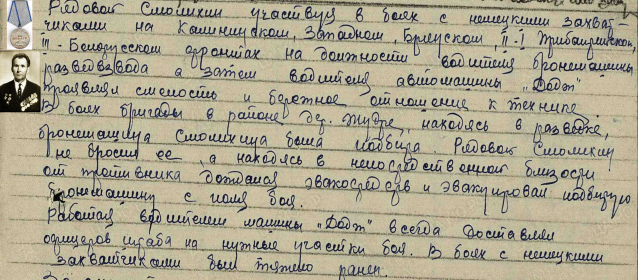 Рядовой Смолкин участвуя в боях с немецкими захват-
чиками на Калининском, Западном, Брянском, II-I Прибалтийском
III-Белорусском фронтах на должности водителя бронемашины
разведвзвода а затем водителя автомашины „Додж"
проявлял смелость и бережное отношение к технике
В боях бригады в районе дер. находясь в разведке,
бронемашина Смолкина была подбита. Рядовой Смолкин
не бросил ее, а находясь в непосредственной близости
от противника дождался эвакосредств и эвакуировал подбитую
бронемашину с поля боя.
Работая водителем машины „Додж" всегда доставлял
офицеров штаба на нужные участки боя. В боях с немецкими
захватчиками был тяжело ранен.